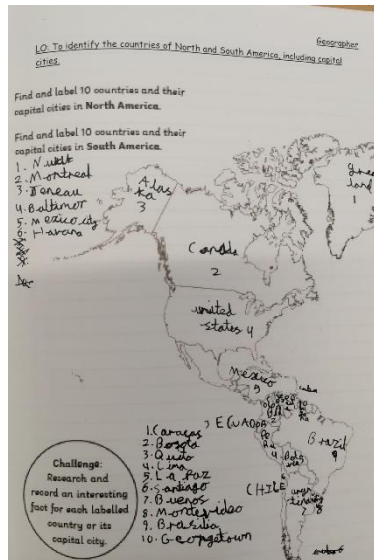 Geographer
LO: To identify the countries of North and South America, including capital
cities.
Find and label 10 countries and their
capital cities in North America.
Find and label 10 countries and their
capital cities in South America.
1. Nuuk
2. Montreal
3. Jeneau
4. Baltimor
5. Mexico city
6. Havana
Alas
ka
3
Green
land
1
Canada
2
united
states 4
Mexico
5
cuba
ECUADOR
Brazil
9
CHILE
1. Caracas
2. Bogota
3. Quito
4. Lima
5. La Paz
6. Santiago
7. Buenos
8. Montevideo
9. Brasilia
10. Georgetown
Challenge:
Research and
record an interesting
fact for each labelled
country or its
capital city.